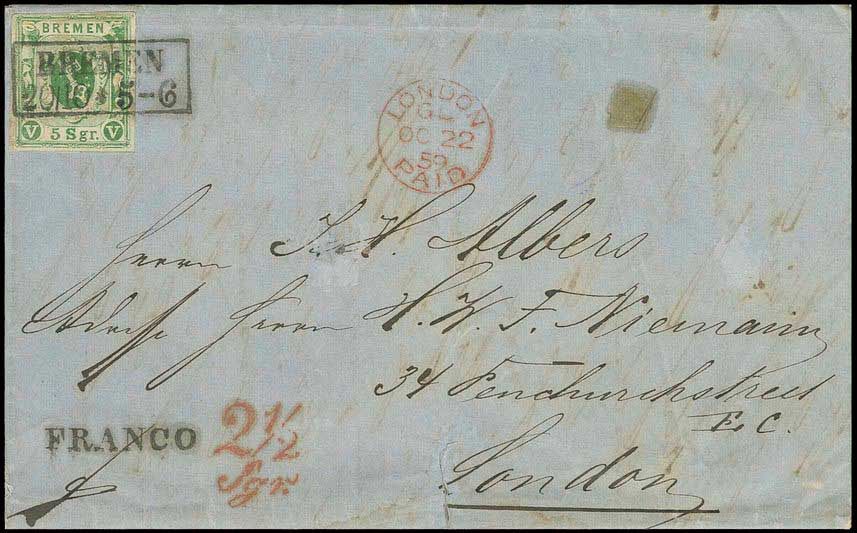 BREMEN
BREMEN
20/10 * 5-6
V 5 Sgr. V
LONDON
OC 22
59
PAID
Herrn J. H. Albers
Adresse Herrn H. W. F. Niemann
34 Fenchurchstreet
E C.
FRANCO 2 1/2
Sgr.
London